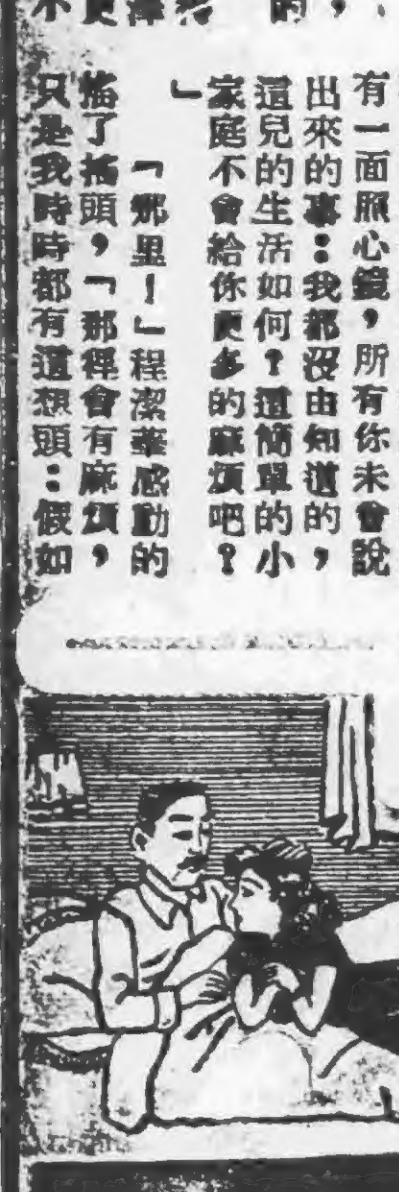 有一面照心鏡，所有你未曾說
出來的事：我都沒由知道的，
這兒的生活如何？這簡單的小
家庭不會給你更多的麻煩吧？
」
「那里！」程潔華感動的
搖了搖頭，「那裡會有麻煩，
只是我時時都有這想頭：假如